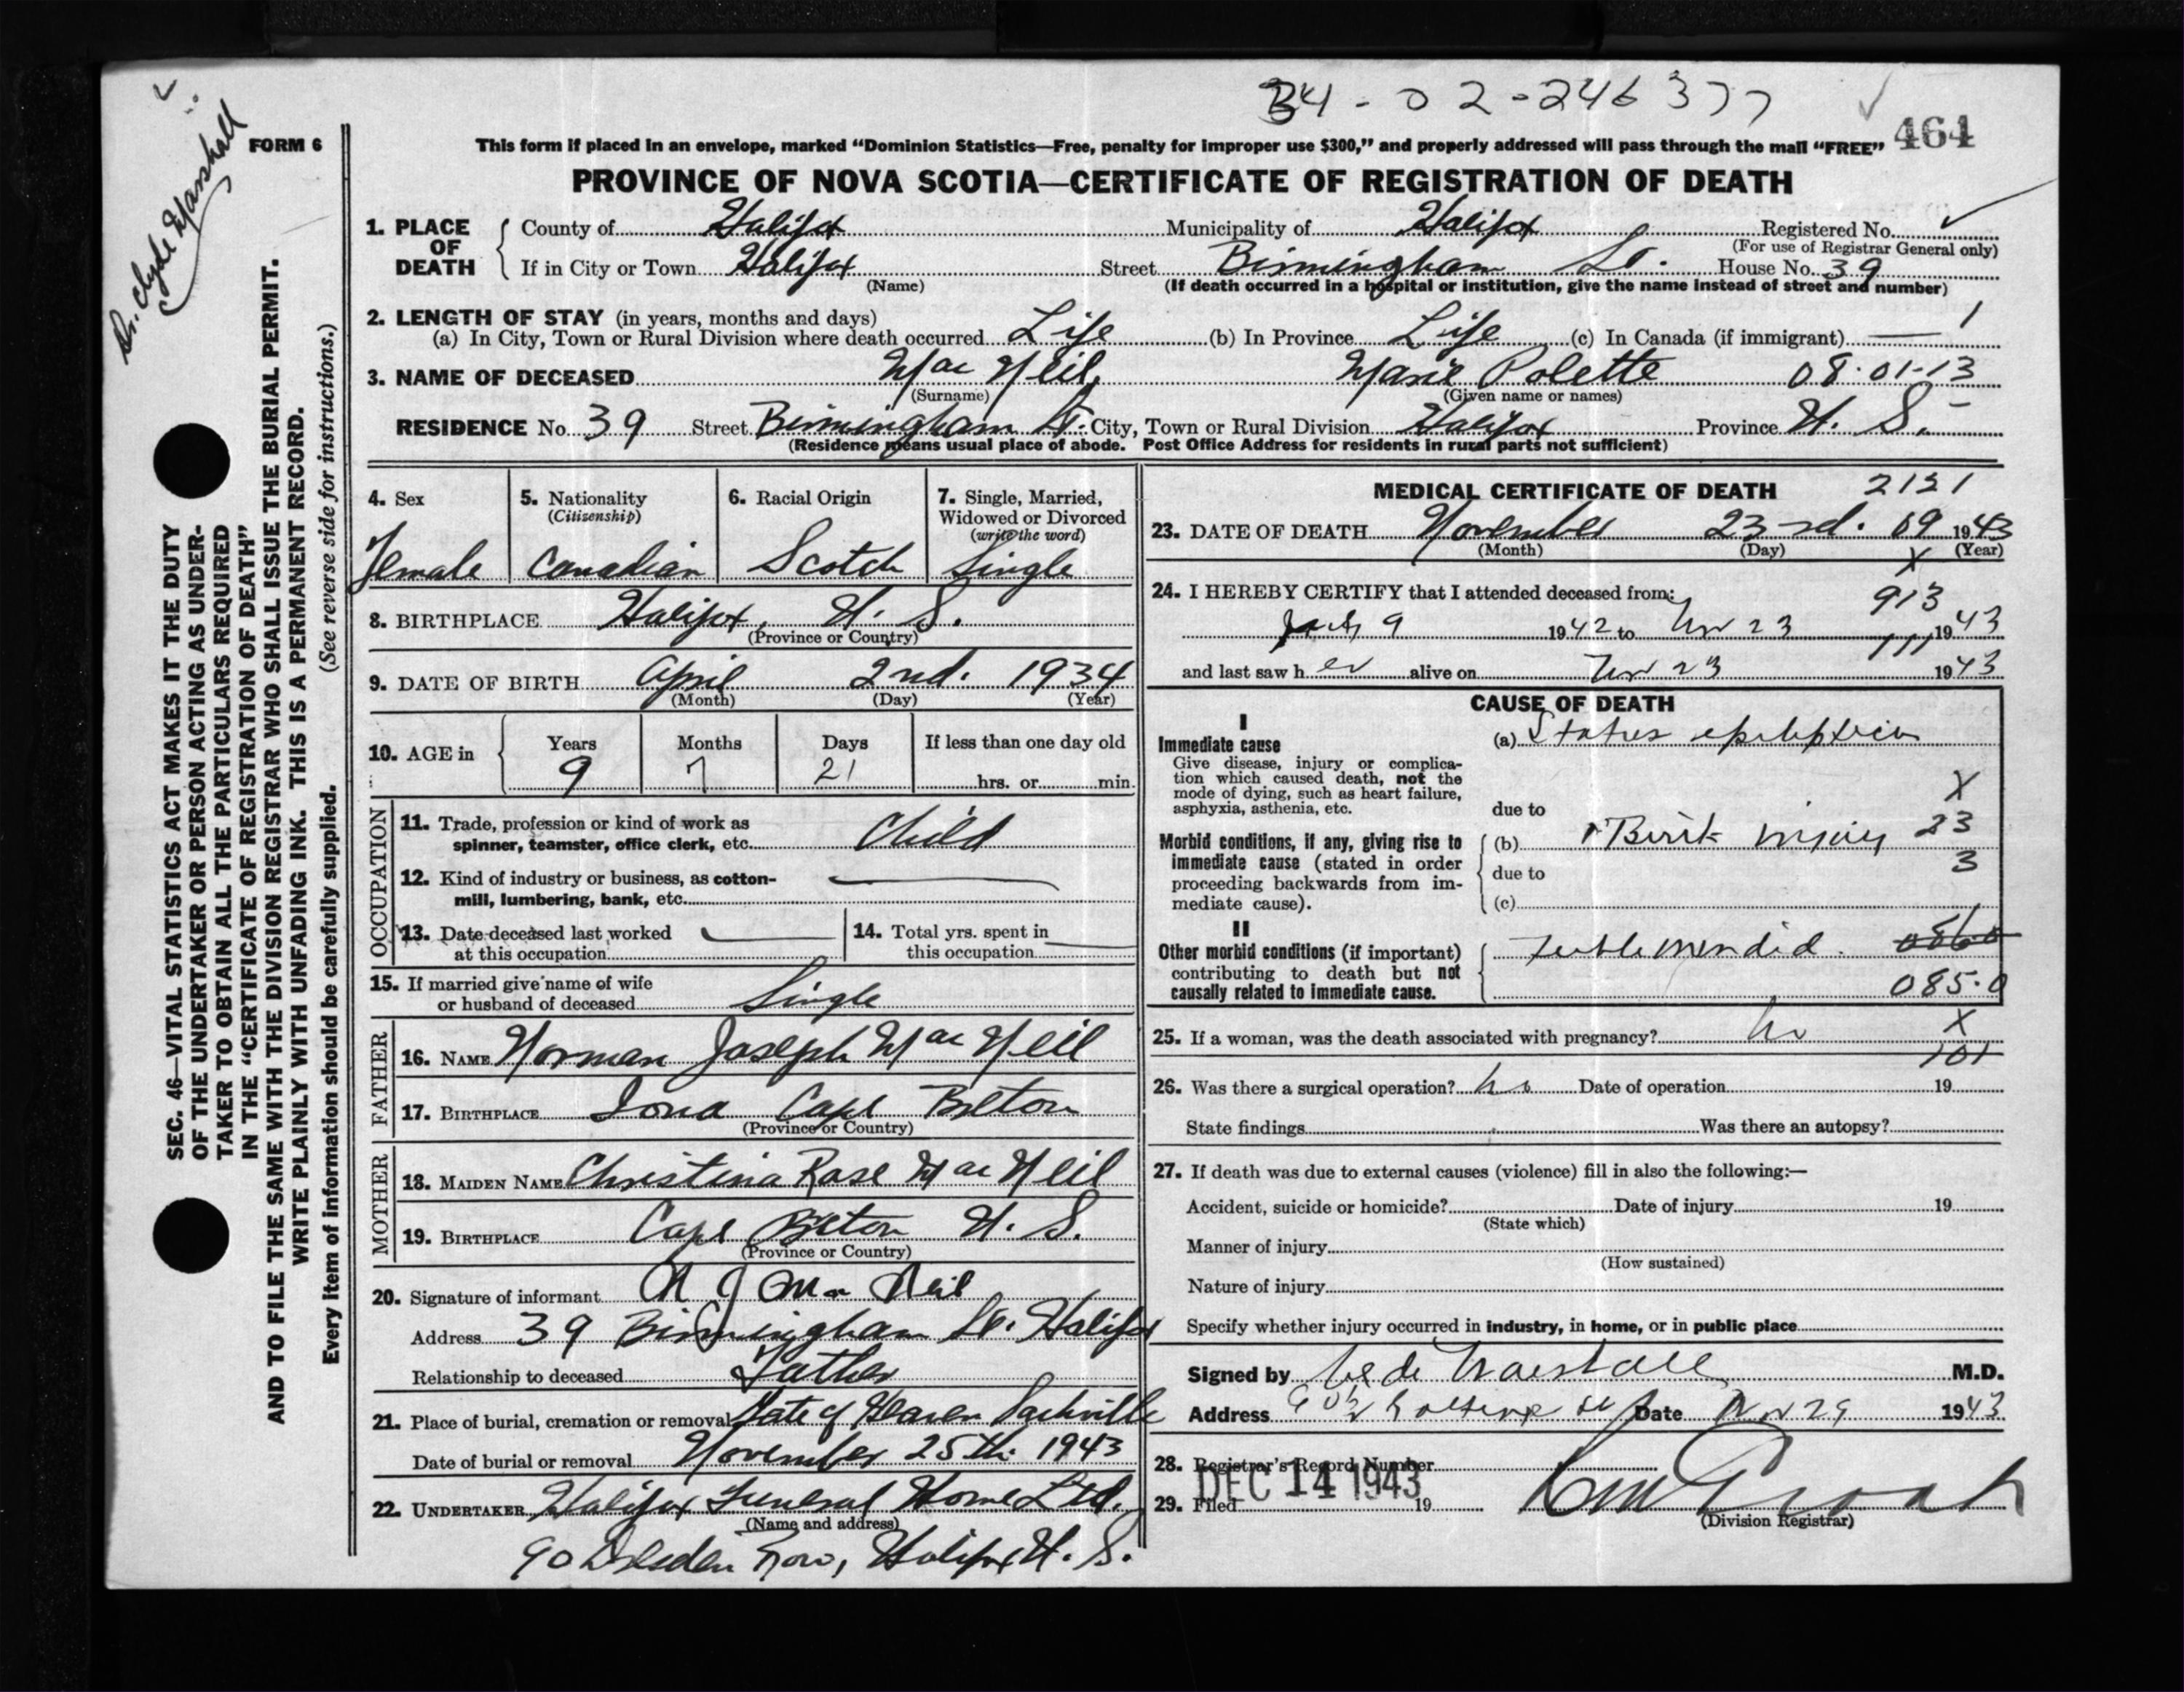 34-02-246377
464
Dr. Clyde Marshall
FORM 6
This form if placed in an envelope, marked “Dominion Statistics—Free, penalty for improper use $300,” and properly addressed will pass through the mail “FREE”
PROVINCE OF NOVA SCOTIA—CERTIFICATE OF REGISTRATION OF DEATH
SEC. 46—VITAL STATISTICS ACT MAKES IT THE DUTY
OF THE UNDERTAKER OR PERSON ACTING AS UNDER-
TAKER TO OBTAIN ALL THE PARTICULARS REQUIRED
IN THE “CERTIFICATE OF REGISTRATION OF DEATH”
AND TO FILE THE SAME WITH THE DIVISION REGISTRAR WHO SHALL ISSUE THE BURIAL PERMIT.
WRITE PLAINLY WITH UNFADING INK. THIS IS A PERMANENT RECORD.
Every item of information should be carefully supplied. (See reverse side for instructions.)
1. PLACE OF DEATH County of Halifax Municipality of Halifax Registered No.
(For use of Registrar General only)
If in City or Town Halifax Street Birmingham St. House No. 39
(Name) (If death occurred in a hospital or institution, give the name instead of street and number)
2. LENGTH OF STAY (in years, months and days)
(a) In City, Town or Rural Division where death occurred Life (b) In Province Life (c) In Canada (if immigrant) — 1
3. NAME OF DECEASED Mac Neil, Marie Polette 08-01-13
(Surname) (Given name or names)
RESIDENCE No. 39 Street Birmingham St. City, Town or Rural Division Halifax Province N. S.
(Residence means usual place of abode. Post Office Address for residents in rural parts not sufficient)
4. Sex 5. Nationality 6. Racial Origin 7. Single, Married,
(Citizenship) Widowed or Divorced
(write the word)
Female Canadian Scotch Single
8. BIRTHPLACE Halifax, N. S.
(Province or Country)
9. DATE OF BIRTH April 2nd. 1934
(Month) (Day) (Year)
10. AGE in Years Months Days If less than one day old
9 7 21 hrs. or min.
OCCUPATION
11. Trade, profession or kind of work as
spinner, teamster, office clerk, etc. Child
12. Kind of industry or business, as cotton-
mill, lumbering, bank, etc.
13. Date deceased last worked 14. Total yrs. spent in
at this occupation this occupation
15. If married give name of wife
or husband of deceased Single
FATHER
16. NAME Norman Joseph Mac Neil
17. BIRTHPLACE Iona Cape Breton
(Province or Country)
MOTHER
18. MAIDEN NAME Christina Rose Mac Neil
19. BIRTHPLACE Cape Breton N. S.
(Province or Country)
20. Signature of informant N J Mac Neil
Address 39 Birmingham St. Halifax
Relationship to deceased Father
21. Place of burial, cremation or removal Gate of Heaven Sackville
Date of burial or removal November 25th 1943
22. UNDERTAKER Halifax Funeral Home Ltd.
(Name and address)
90 Dresden Row, Halifax N. S.
MEDICAL CERTIFICATE OF DEATH 2131
23. DATE OF DEATH November 23rd. 09 1943
(Month) (Day) X (Year)
24. I HEREBY CERTIFY that I attended deceased from: 913
July 9 1942 to Nov 23 1943
111
and last saw her alive on Nov 23 1943
CAUSE OF DEATH
I
Immediate cause (a) Status epilepticus
Give disease, injury or complica-
tion which caused death, not the
mode of dying, such as heart failure,
asphyxia, asthenia, etc. due to X
Morbid conditions, if any, giving rise to (b) Birth injury 23
immediate cause (stated in order
proceeding backwards from im- due to 3
mediate cause). (c)
II
Other morbid conditions (if important) feeble minded.
contributing to death but not
causally related to immediate cause. 085.0
25. If a woman, was the death associated with pregnancy? no X
101
26. Was there a surgical operation? no Date of operation 19
State findings Was there an autopsy?
27. If death was due to external causes (violence) fill in also the following:—
Accident, suicide or homicide? Date of injury 19
(State which)
Manner of injury
(How sustained)
Nature of injury
Specify whether injury occurred in industry, in home, or in public place
Signed by Clyde Marshall M.D.
Address Date Nov 29 1943
28. Registrar's Record Number
29. Filed DEC 14 1943 19
(Division Registrar)